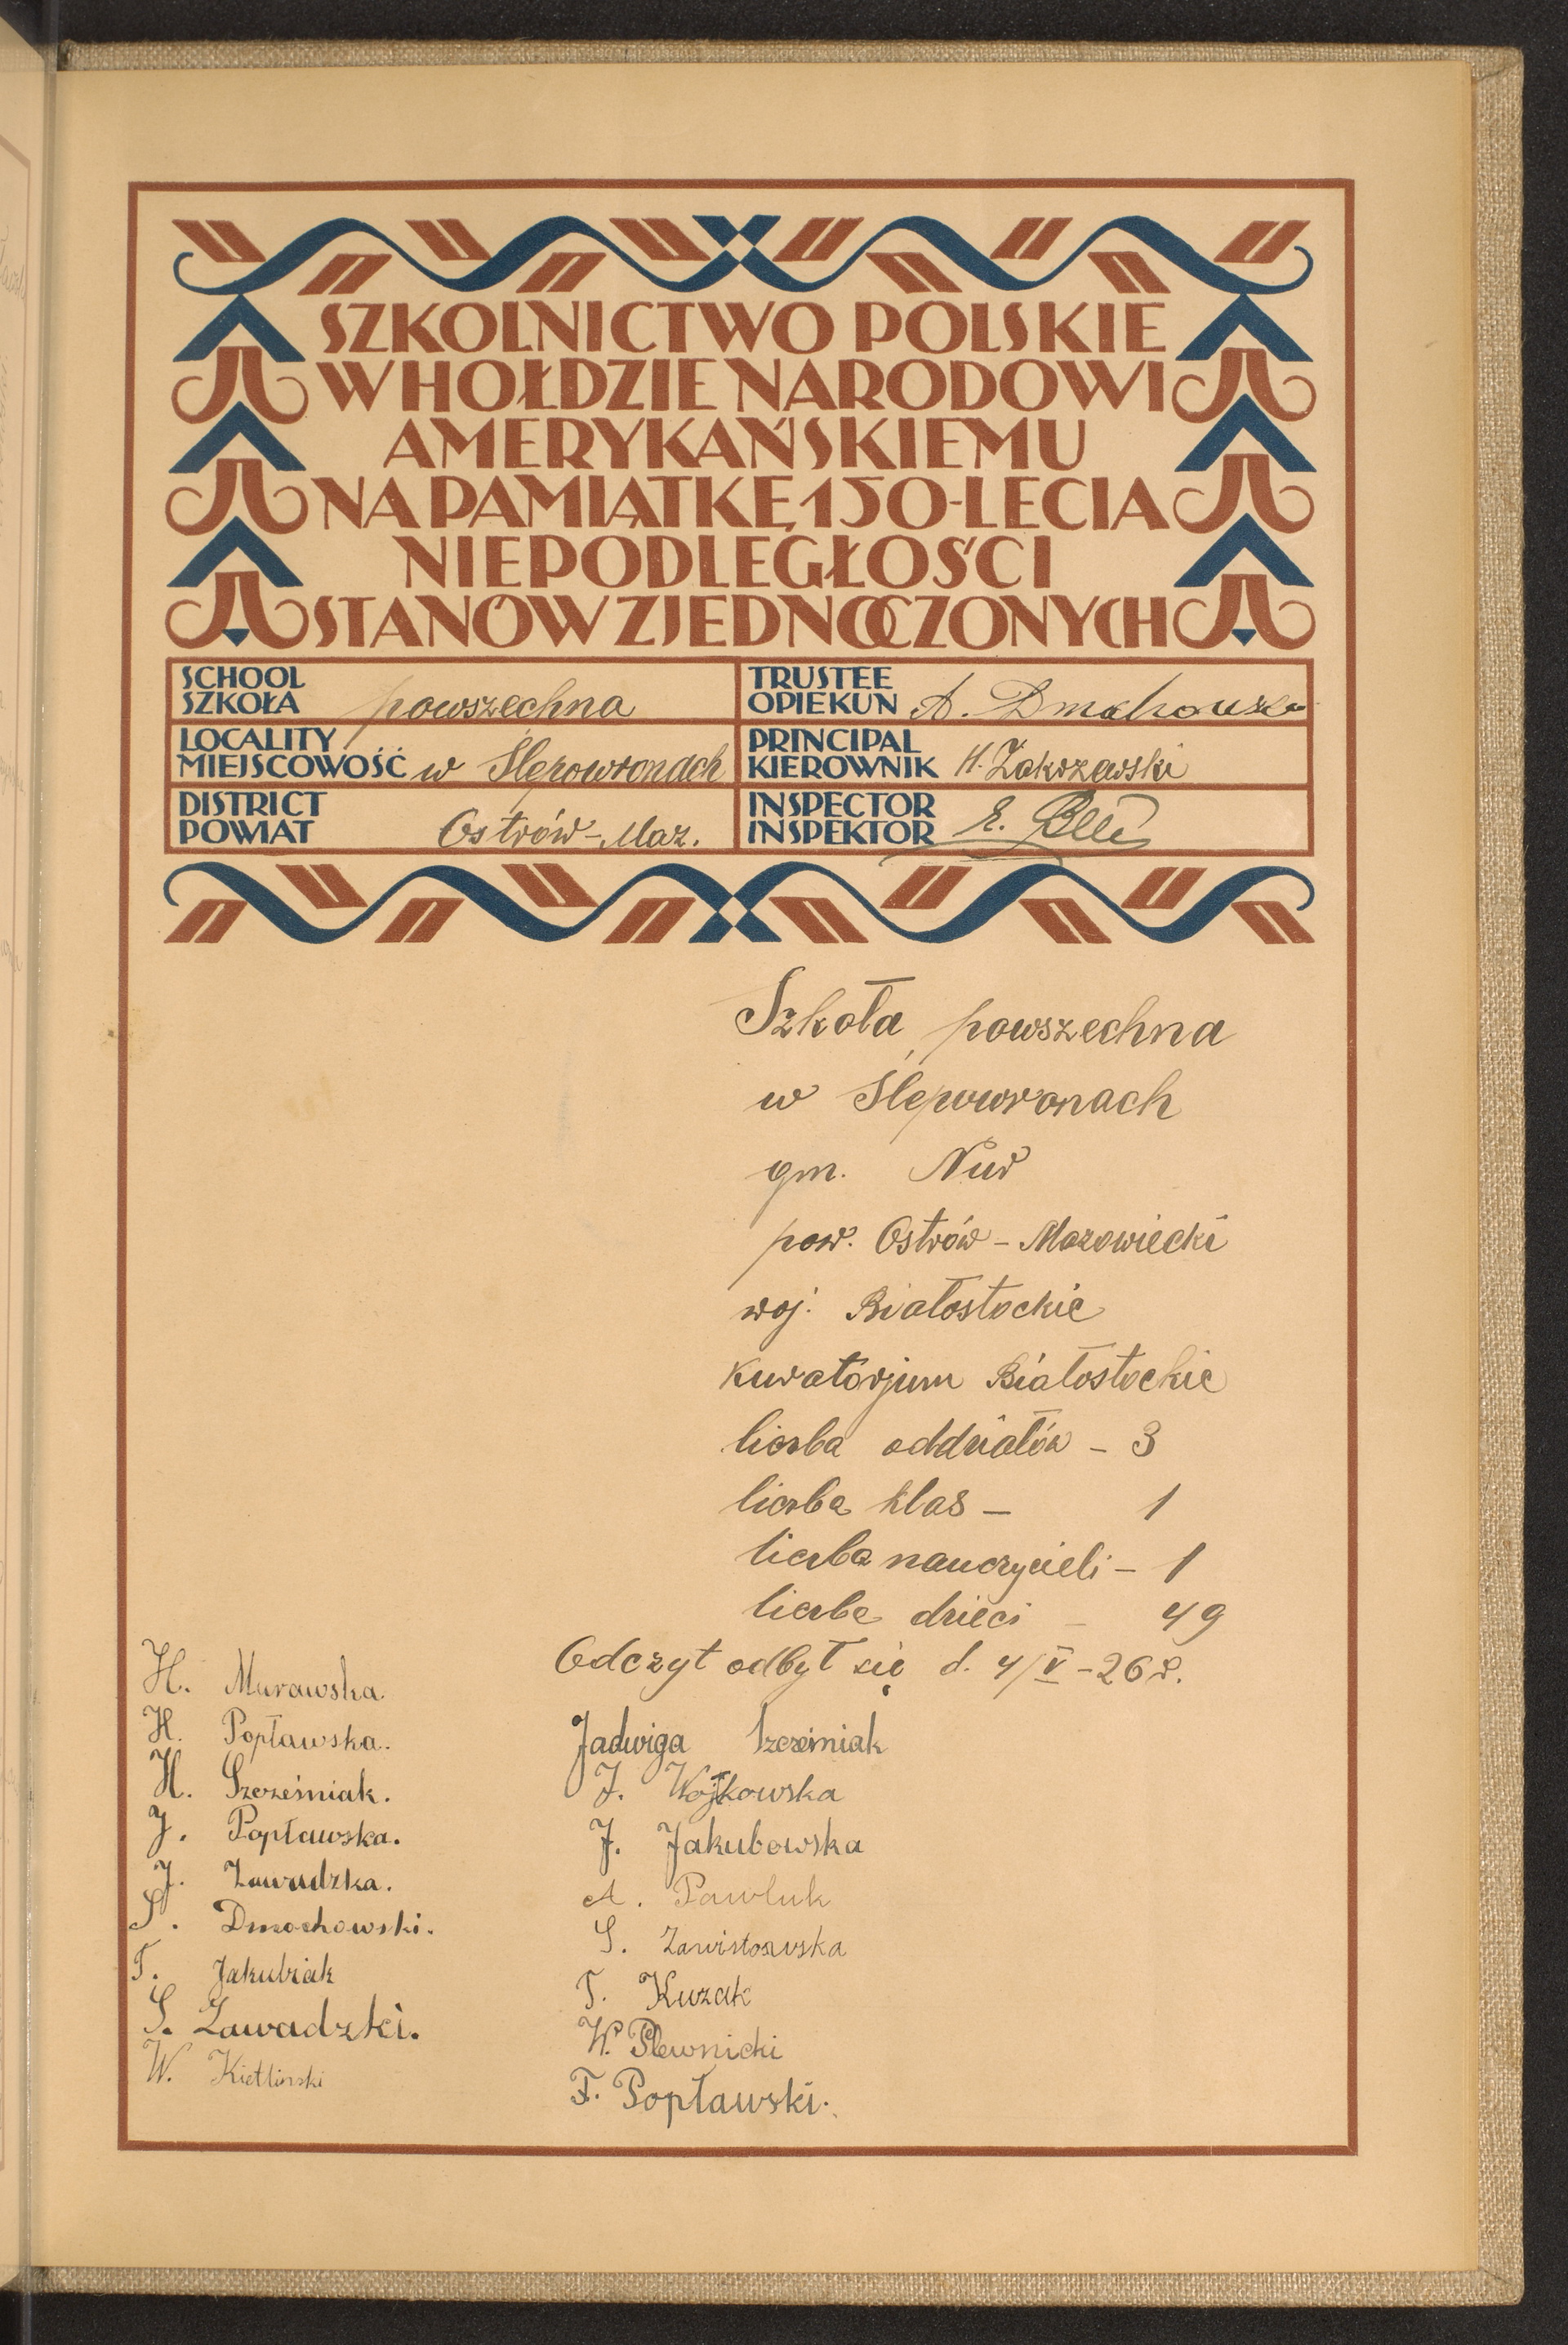 SZKOLNICTWO POLSKIE
W HOŁDZIE NARODOWI
AMERYKAŃSKIEMU
NA PAMIĄTKĘ 150-LECIA
NIEPODLEGŁOŚCI
STANÓW ZJEDNOCZONYCH
SCHOOL
SZKOŁA powszechna
LOCALITY
MIEJSCOWOŚĆ w Ślepowronach
DISTRICT
POWIAT Ostrów-Maz.
TRUSTEE
OPIEKUN A.
PRINCIPAL
KIEROWNIK H. Zakrzewski
INSPECTOR
INSPEKTOR E.
Szkoła powszechna
w Ślepowronach
gm. Nur
pow. Ostrów-Mazowiecki
woj. Białostockie
Kuratorjum Białostockie
liczba oddziałów - 3
liczba klas - 1
liczba nauczycieli - 1
liczba dzieci - 49
Odczyt odbył się d. 4/V-26 r.
H. Murawska
H. Popławska.
H. Szcześniak.
J. Popławska.
J. Zawadzka.
S. Dmochowski.
T. Jakubiak
S. Zawadzki.
W. Kietliński
Jadwiga Szcześniak
J. Wojtkowska
J. Jakubowska
A. Pawluk
S. Zawistowska
T. Kuzak
W. Plewnicki
F. Popławski.